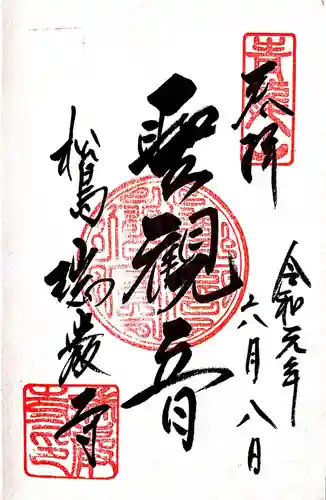 奉拝
令和元年
六月八日
聖観音
松島
瑞巌寺